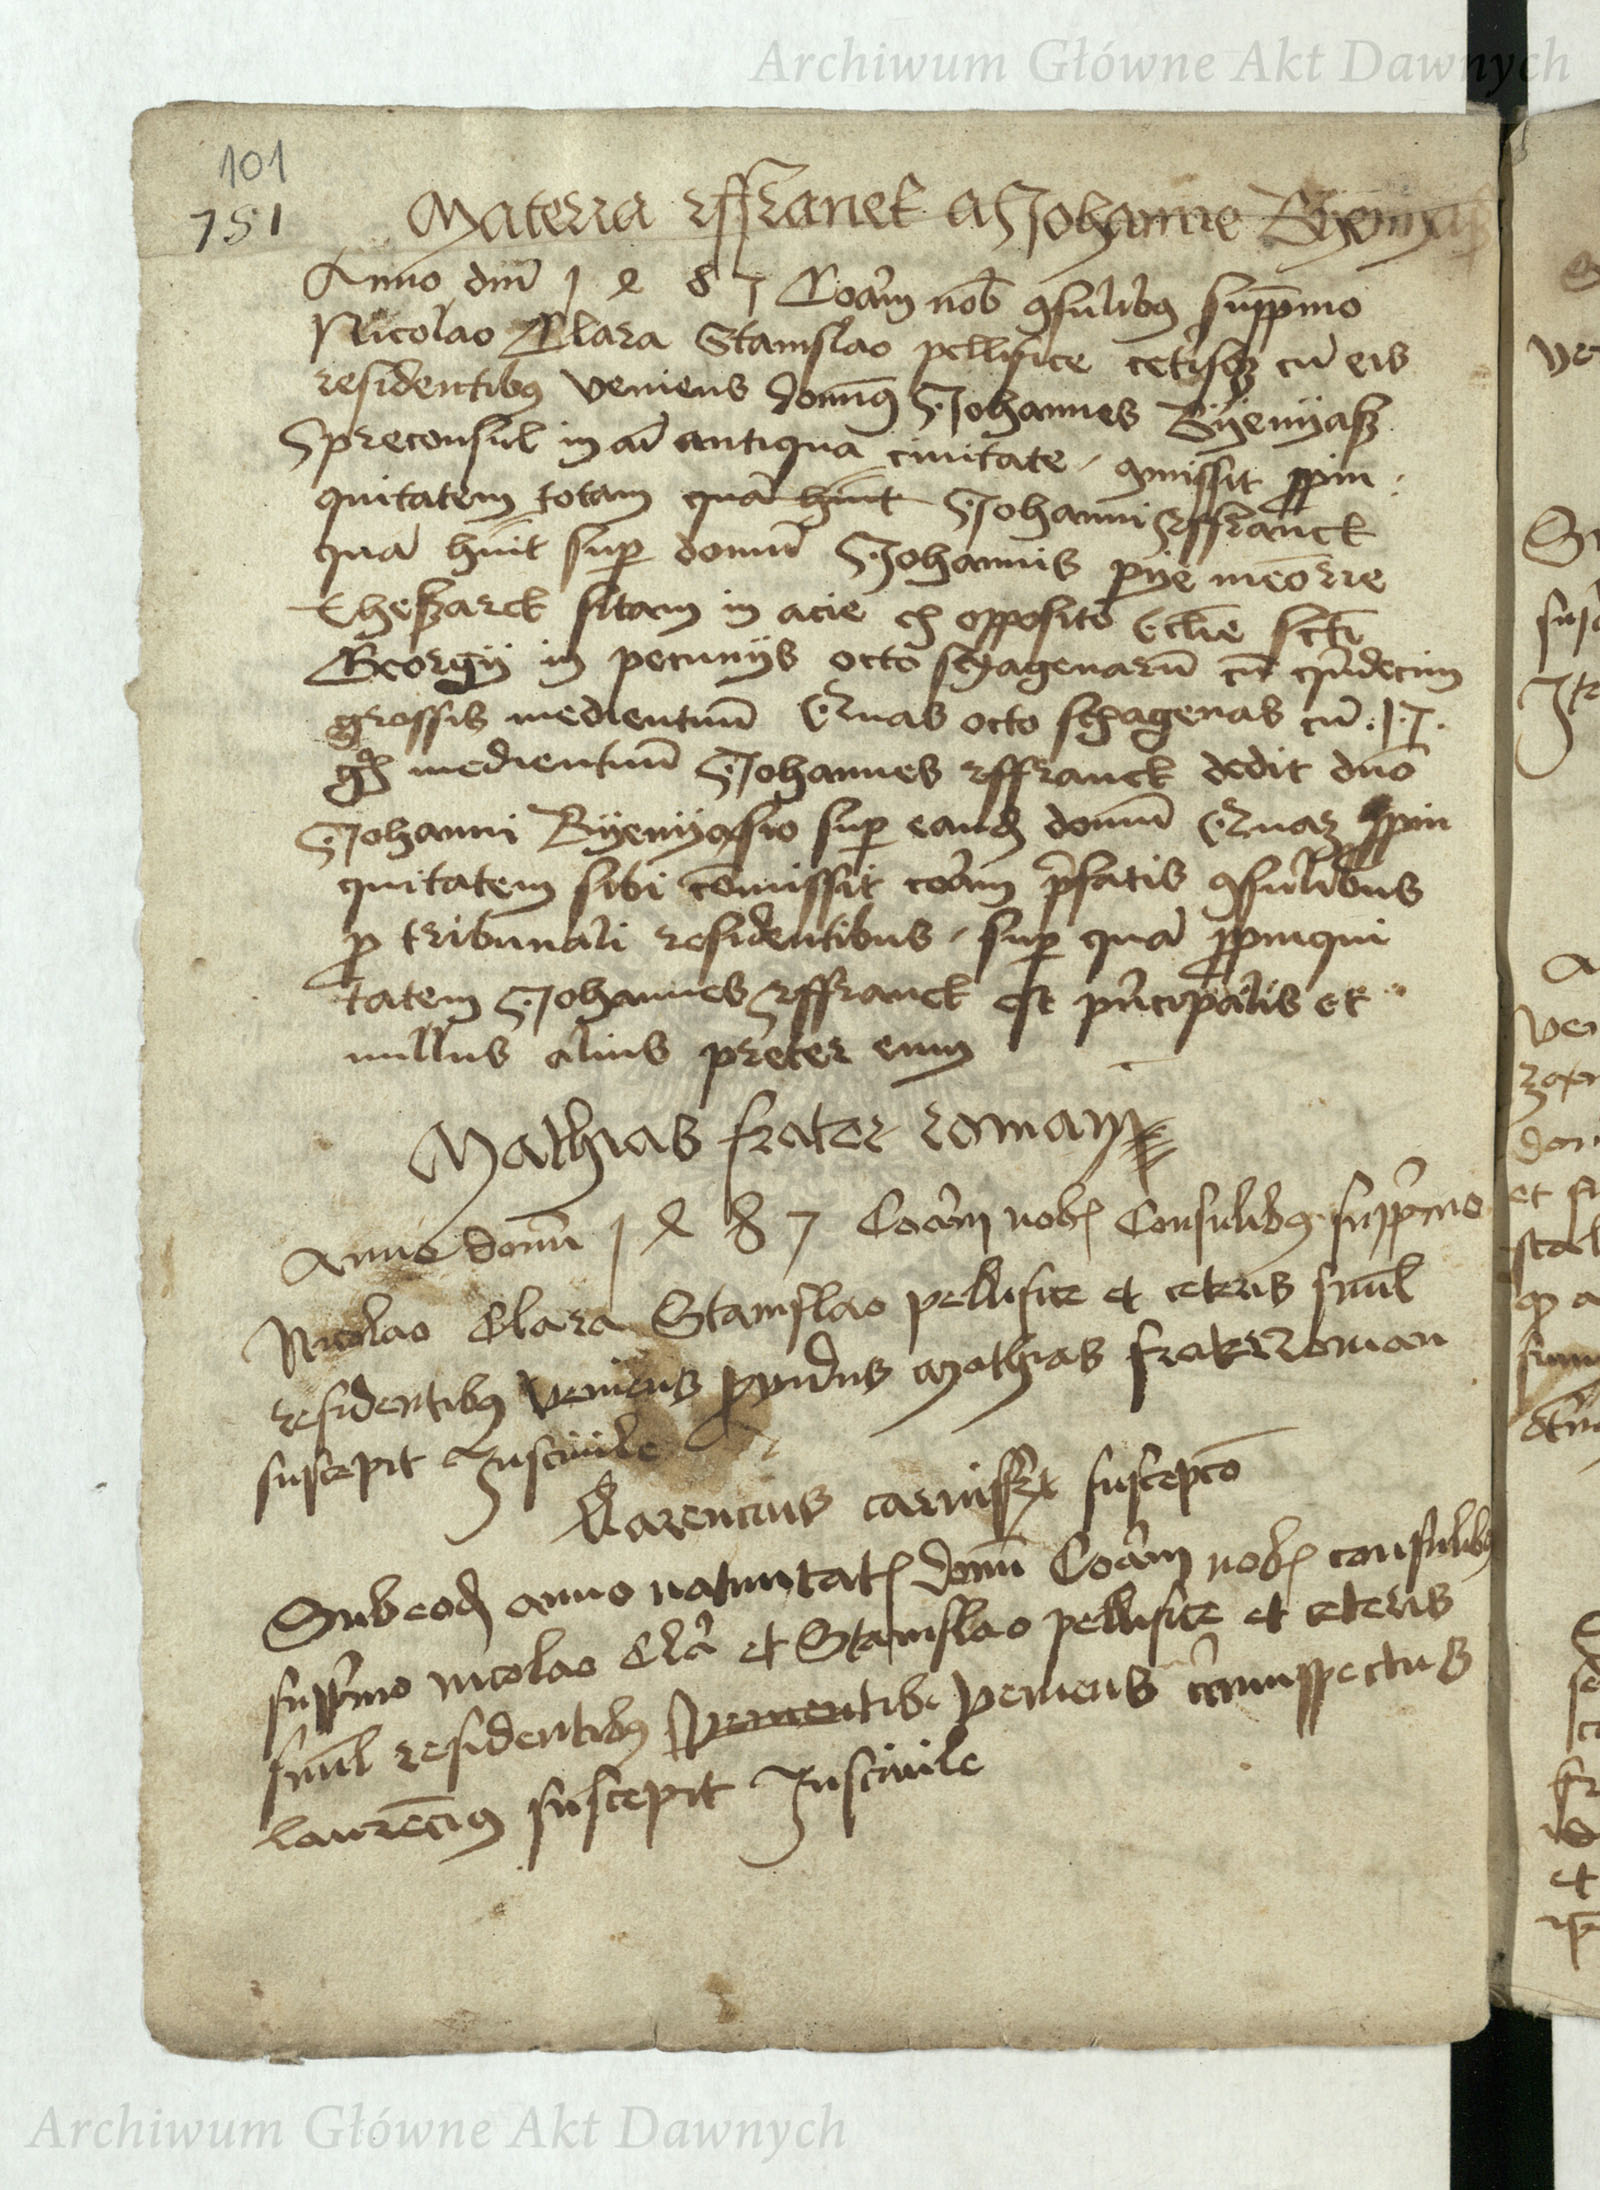 Archiwum Główne Akt Dawnych
101
151
Materia rffranck a Johanne Byenyasz
Anno dni 1 4 8 7 Coram nob consulibus suppremo
Nicolao Clara Stanislao pellifice cetisq cu eis
residentibus veniens domus Johannes Byenyasz
preconsul in antiqua civitate comissit ppin
quitatem totam qua hunt Johanni rffranck
qua huit sup domu Johannis pye meorie
sitam in acie ex opposito ecclie scti
Georgii in pecuniis octo sexagenaru cu quindecim
grossis medientum Quas octo sexagenas cu 15
gr medientum Johannes rffranck dedit duo
Johanni Byenyasio sup eand domu Quaz ppin
quitatem sibi comissit coram pfatis consulibus
p tribunali residentibus sup qua ppinqui
tatem Johannes rffranck est principalis et
nullus alius preter eum
Mathias frater roman
Anno domi 1 4 8 7 Coram nob consulibus suppremo
Nicolao Clara Stanislao pellifice et ceteris simul
residentibus veniens providus Mathias frater roman
suscepit Jus civile
Larencius carnifex suscepto
Sub eod anno nativitatis domi Coram nob consulibus
suppremo nicolao Clara et Stanislao pellifice et ceteris
simul residentibus venientib veniens circumspectus
laurencius suscepit Jus civile
Archiwum Główne Akt Dawnych